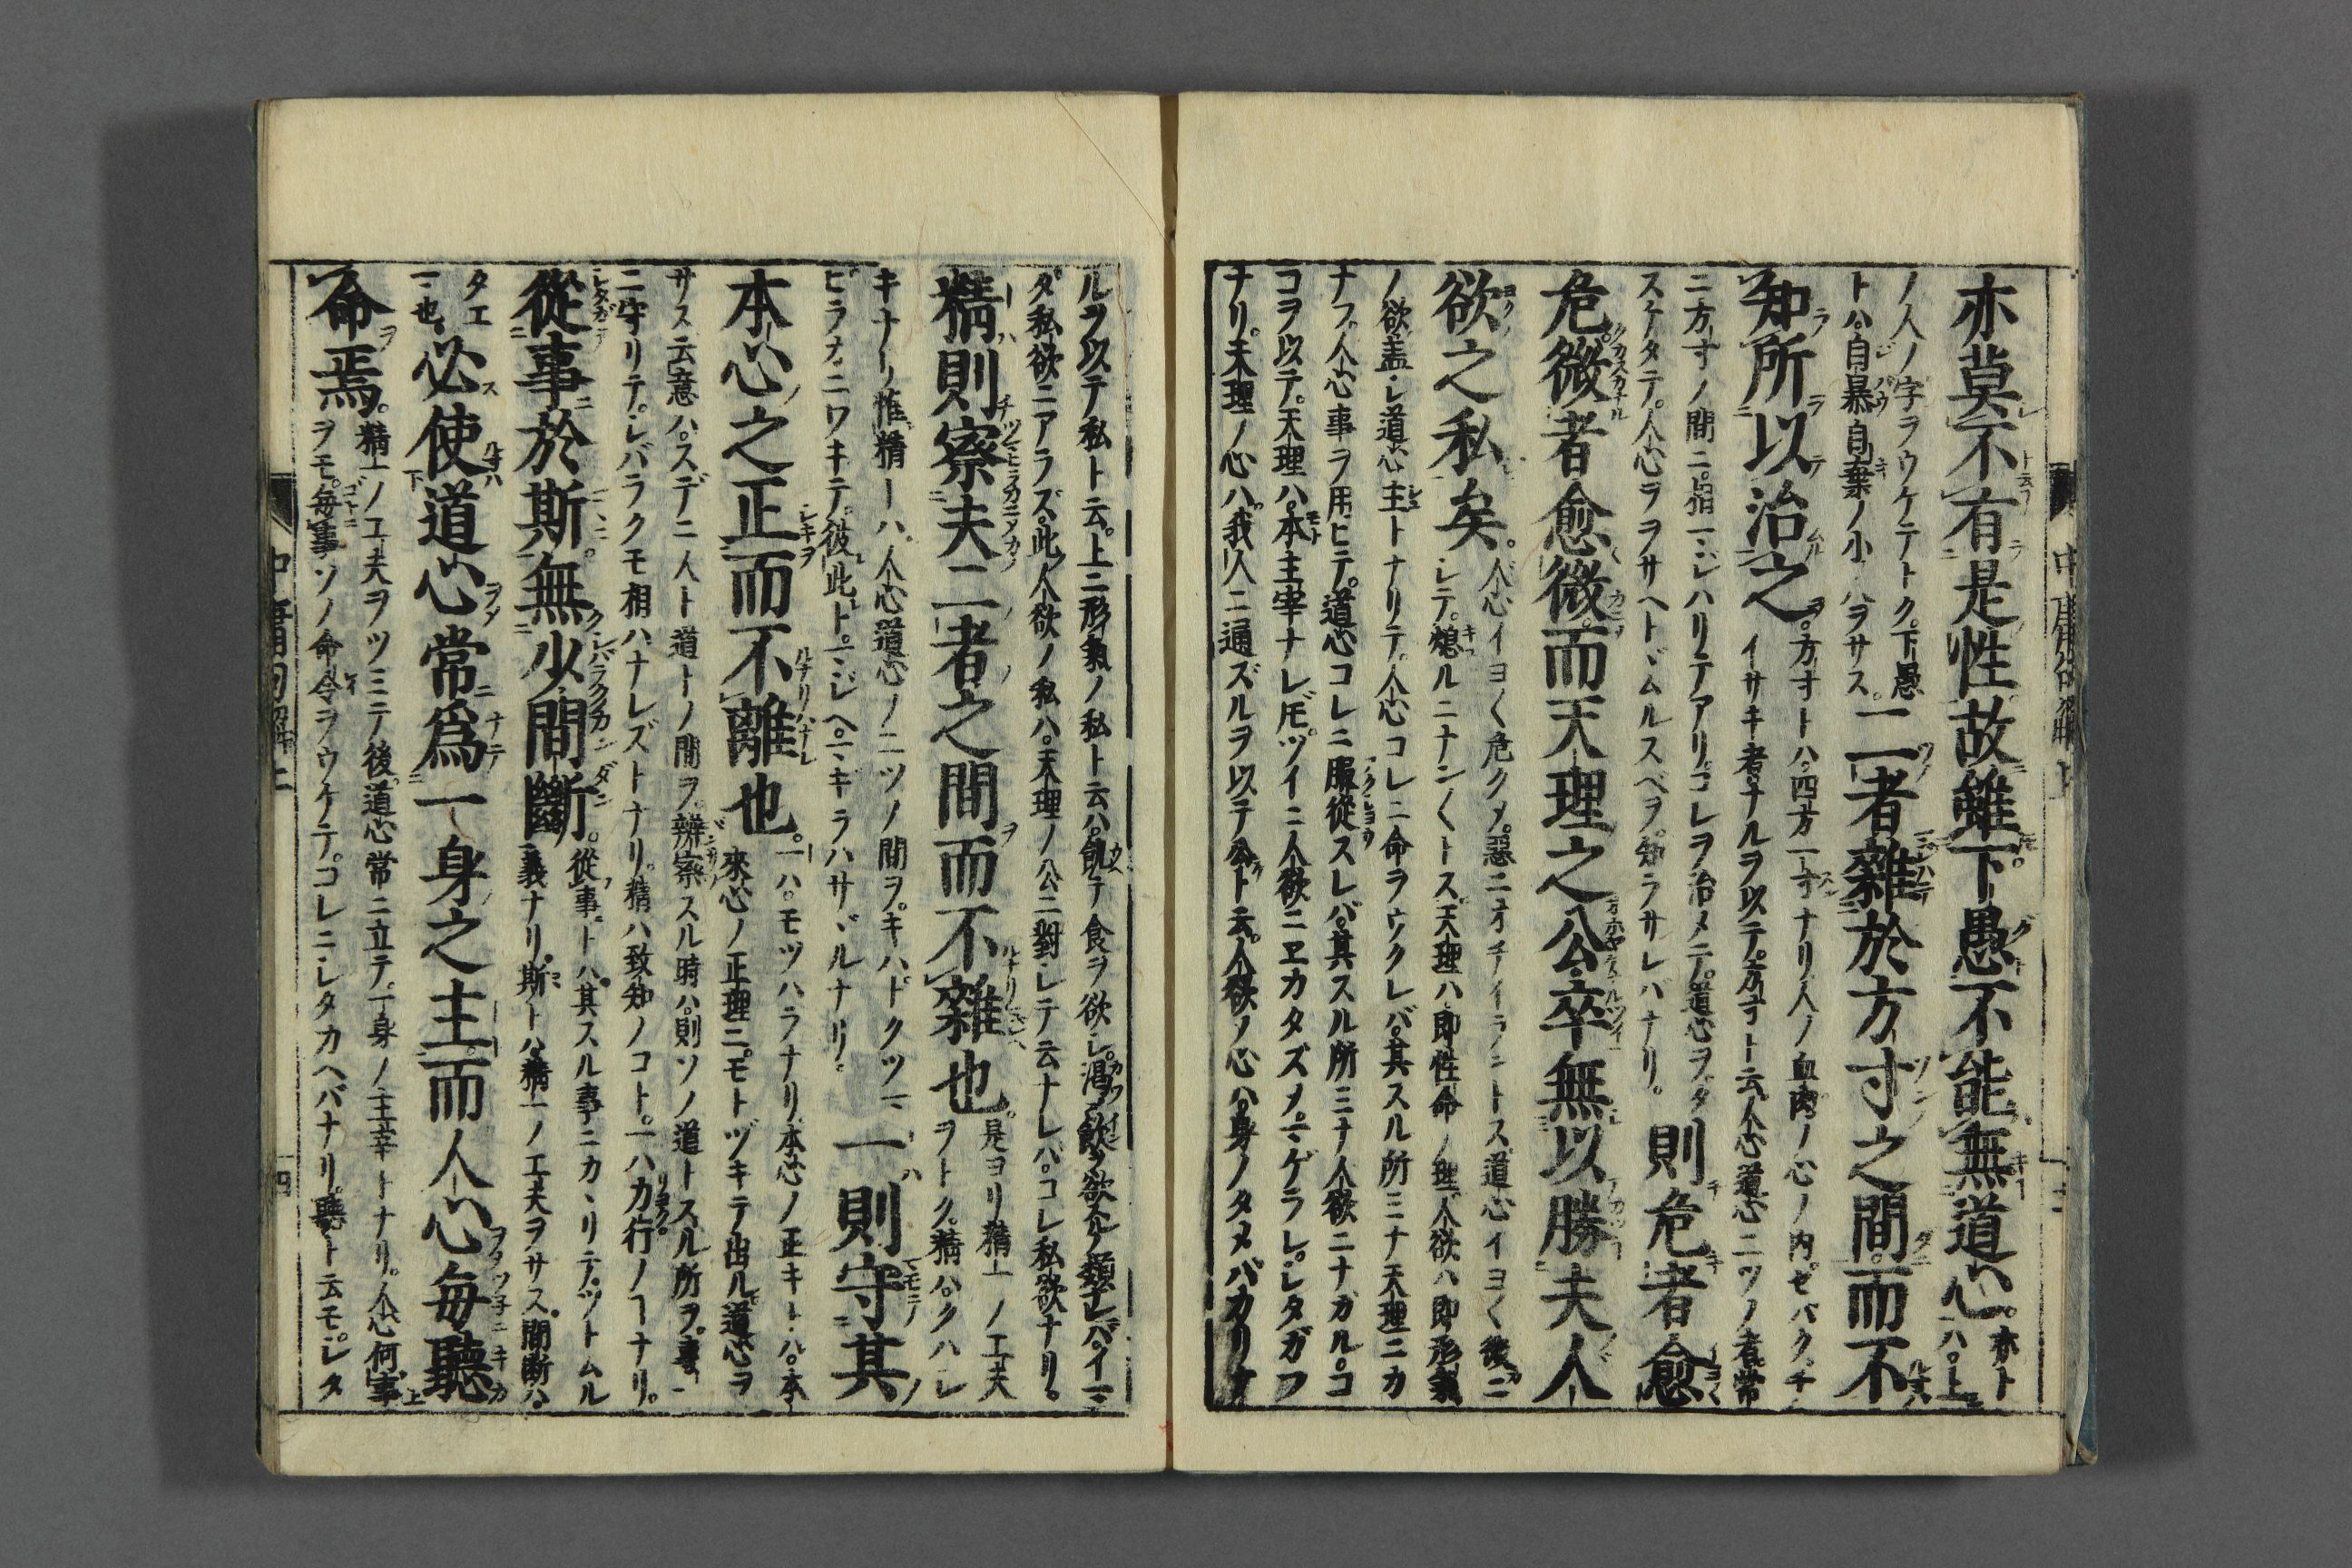 亦莫不有是性故雖下愚不能無道心。亦ト
ハ上
ノ人ノ字ヲウケテトク。下愚
トハ。自暴自棄ノ小人ヲサス。
二者雜於方寸之間。而不
知所以治之。
方寸トハ。四方一寸ナリ人ノ血肉ノ心ノ内。セバクチ
イサキ者ナルヲ以テ。方寸ト云。人心道心二ツノ者常
ニ方寸ノ間ニ。相マジハリテアリ。コレヲ治メテ。道心ヲタ
スケタテ。人心ヲヲサヘトヾムルスベヲ。知ラサレバナリ。
則危者愈
危。微者愈微。而天理之公。卒無以勝夫人
欲之私矣。
人心イヨ〱危クメ。惡ニオチイラントス。道心イヨ〱微ニ
シテ。熄ルニナン〱トス。天理ハ即性命ノ理。人欲ハ即形氣
ノ欲。蓋シ道心主トナリテ。人心コレニ命ヲウクレバ。其スル所ミナ天理ニカ
ナフ。人心事ヲ用ヒテ。道心コレニ服從スレバ。其スル所ミナ人欲ニナガル。コ
コヲ以テ。天理ハ。本主宰ナレ𪜈。ツイニ人欲ニヱカタズメ。マゲラレ。シタガフ
ナリ。天理ノ心ハ。我人ニ通ズルヲ以テ公ト云。人欲ノ心ハ。身ノタメバカリナ
ルヲ以テ私ト云。上ニ形氣ノ私ト云ハ。飢テ食ヲ欲シ。渇テ飲ヲ欲スルノ類ナレバ。イマ
ダ私欲ニアラズ。此人欲ノ私ハ。天理ノ公ニ對シテ云ナレバ。コレ私欲ナリ。
精則察夫二者之間而不雜也。
是ヨリ精一ノ工夫
ヲトク。精ハ。クハシ
キナリ。惟精トハ。人心道心ノ二ツノ間ヲ。キハトクツマ
ビラカニワキテ。彼此トマジヘ。マギラハサヾルナリ。
一則守其
本心之正。而不離也。
一ハ。モツハラナリ。本心ノ正キトハ。本
來心ノ正理ニ。モトヅキテ出ル。道心ヲ
サス。云意ハ。スデニ人ト道トノ間ヲ。辨察スル時ハ。則ソノ道トスル所ヲ。專一
ニ守リテ。シバラクモ相ハナレズトナリ。精ハ致知ノコト。一ハ力行ノヿナリ。
從事於斯。無少間斷。
從事トハ。其スル事ニカヽリテ。ツトムル
義ナリ。斯トハ。精一ノ工夫ヲサス。間斷ハ。
タエ
マ也。
必使道心常爲一身之主。而人心每聽
命焉。
精一ノ工夫ヲツミテ後。道心常ニ立テ。一身ノ主宰トナリ。人心何事
ヲモ。每事ソノ命令ヲウケテ。コレニシタカヘバナリ。聽ト云モ。シタ
中庸句解上
四